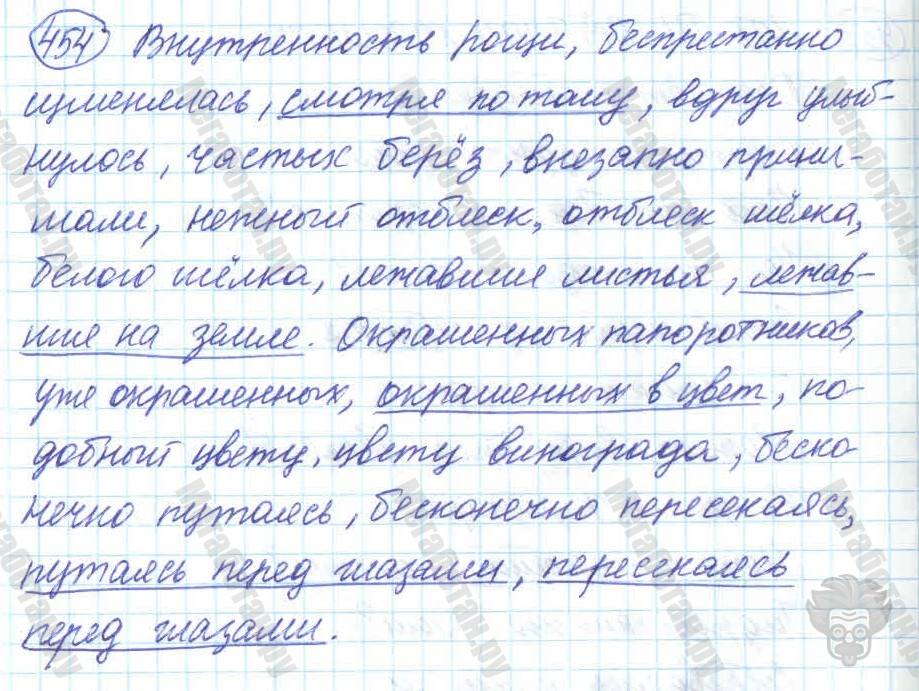 454 Внутренность рощи, беспрестанно
изменялась, смотря по тому, вдруг улыб-
нулось, частых берёз, внезапно прини-
мали, нежный отблеск, отблеск шёлка,
белого шёлка, лежавшие листья, лежав-
шие на земле. Окрашенных папоротников,
уже окрашенных, окрашенных в цвет, по-
добный цвету, цвету винограда, беско-
нечно путаясь, бесконечно пересекаясь,
путаясь перед глазами, пересекаясь
перед глазами.
мегаботан.ру